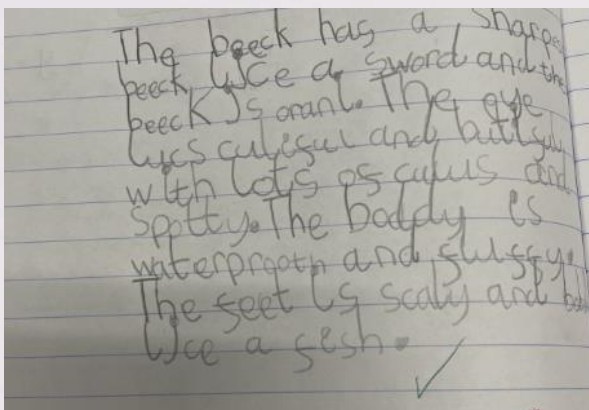 The beeck has a sharpe
beeck lice a sword and the
beeck is oranl. The eye
lucs culisul and butisul
with lots os culus and
spotty. The boddy is
waterprooth and flussy.
The seet is scaly and
lice a sish.